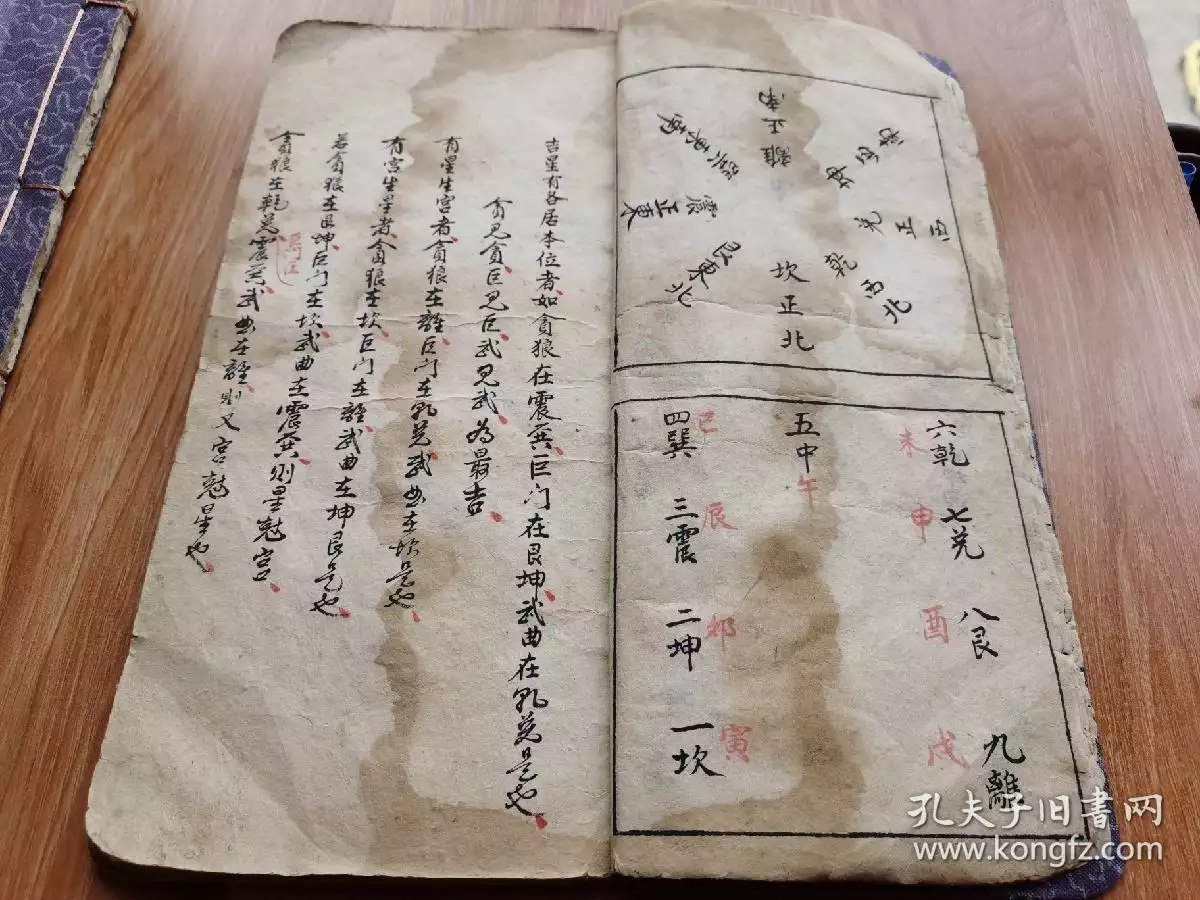 離正南
坤西南
兌正西
乾西北
坎正北
艮東北
震正東
巽東南
六乾
未
七兌
申
八艮
酉
九離
戌
五中
午
四巽
巳
三震
辰
二坤
卯
一坎
寅
吉星有各居本位者、如貪狼在震巽、巨门在艮坤、武曲在乹兌是也、
貪見貪、巨見巨、武見武、為最吉、
有星生宮者、貪狼在離、巨门在乹兌、武曲在坎是也、
有宮生星者、貪狼在坎、巨门在離、武曲在坤艮是也、
若貪狼在艮坤、巨门在坎、武曲在震巽、則星尅宮、
貪狼在乾兌、震巽、武曲在離、則又宮尅星也、
巨门在
孔夫子旧書网
www.kongfz.com